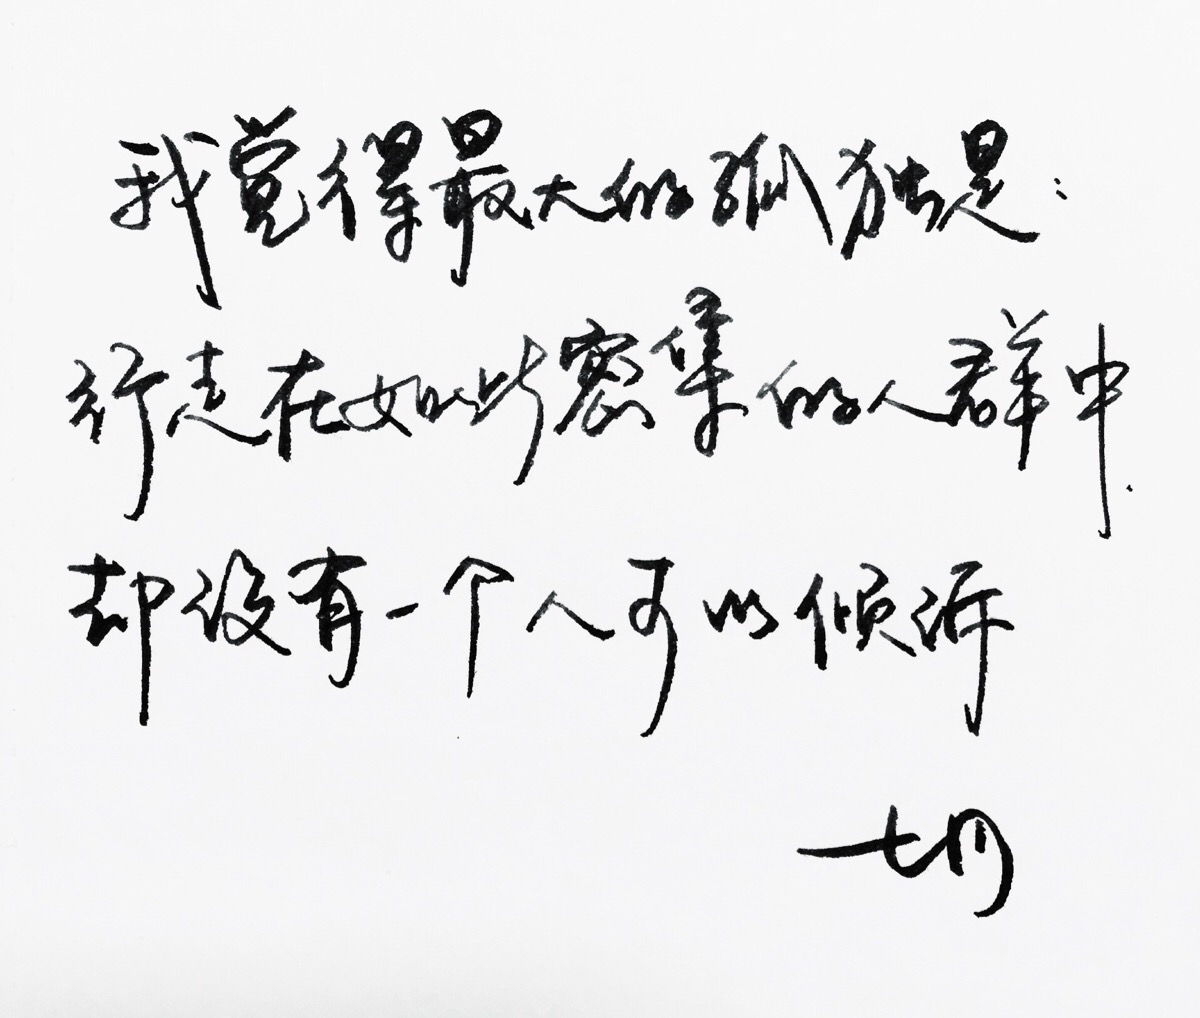 我觉得最大的孤独是：
行走在如此密集的人群中.
却没有一个人可以倾诉